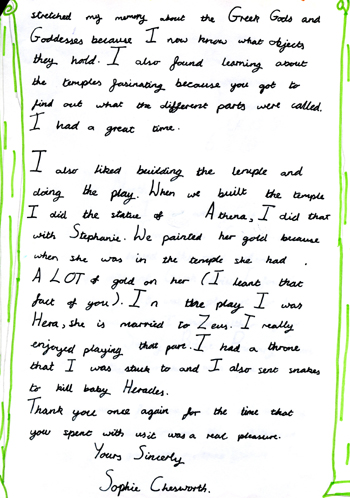 stretched my memory about the Greek Gods and
Goddesses because I now know what objects
they hold. I also found learning about
the temples fasinating because you got to
find out what the different parts were called.
I had a great time.
I also liked building the temple and
doing the play. When we built the temple
I did the statue of Athena, I did that
with Stephanie. We painted her gold because
when she was in the temple she had
A LOT of gold on her (I leant that
fact of you). In the play I was
Hera, she is married to Zeus. I really
enjoyed playing that part. I had a throne
that I was stuck to and I also sent snakes
to kill baby Heracles.
Thank you once again for the time that
you spent with us it was a real pleasure.
Yours Sincerly
Sophie Chesworth.